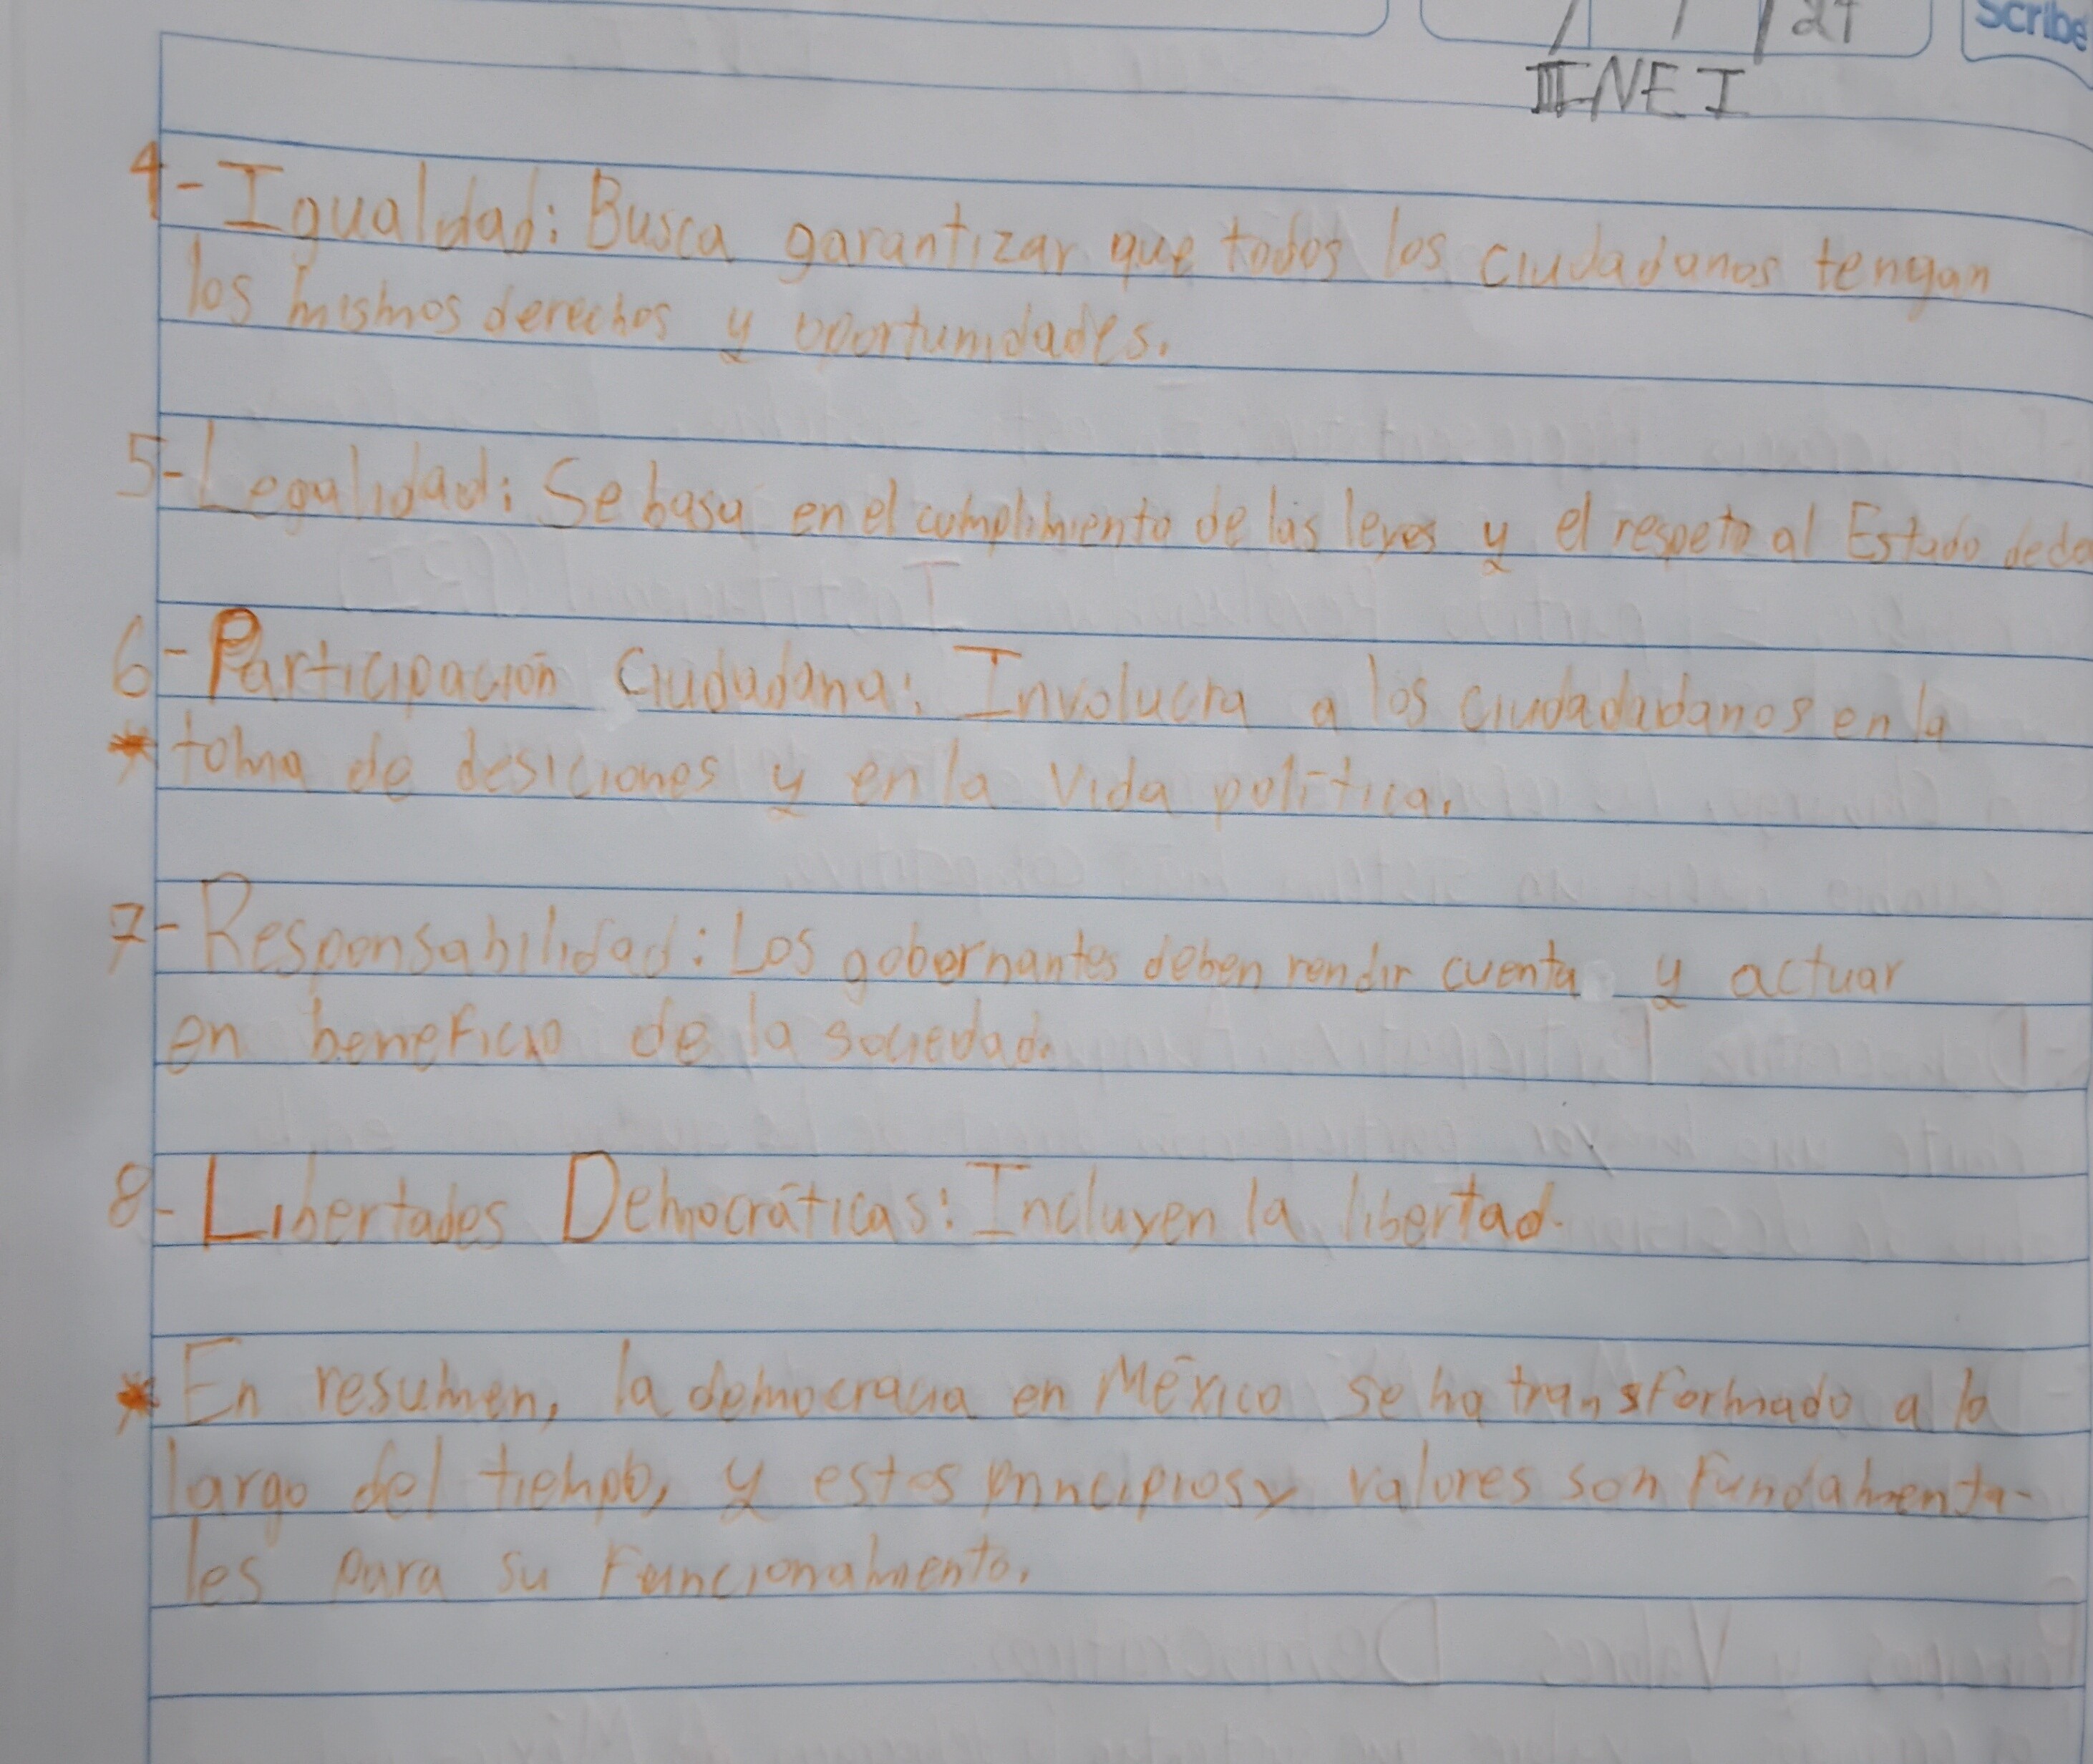 / / /24
Scribe
INEI
4-Igualdad: Busca garantizar que todos los ciudadanos tengan
los mismos derechos y oportunidades.
5-Legalidad: Se basa en el cumplimiento de las leyes y el respeto al Estado dede
6-Participación Ciudadana: Involucra a los ciudadadanos en la
* toma de desiciones y en la vida política.
7-Responsabilidad: Los gobernantes deben rendir cuenta y actuar
en beneficio de la sociedad.
8-Libertades Democráticas: Incluyen la libertad.
* En resumen, la democracia en México se ha transformado a lo
largo del tiempo, y estos principios y valores son fundamenta-
les para su funcionamento.